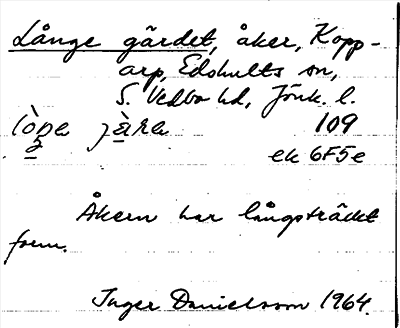 Långe gärdet, åker, Kopp-
arp, Edshults sn,
S. Vedbo hd, Jönk. l.
109
ek 6F5e
Åkern har långsträckt
form.
Inger Danielsson 1964.